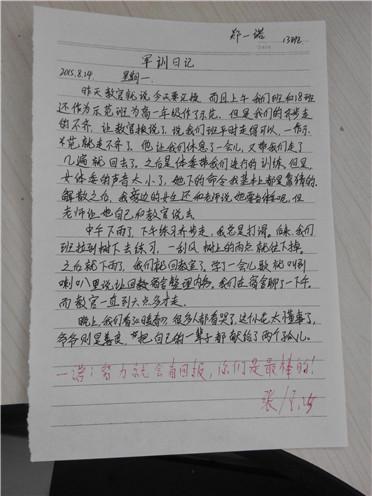 郑一诺
13班
军训日记
2015.8.24 星期一
昨天教官就说今天要汇报 而且上午我们班和18班
还作为示范班为高一年级作了示范。但是我们的齐步走
的不齐，让教官挨说了，说我们班平时走得可以，一示
范就走不齐了。他让我们休息了一会儿，又带我们走了
几遍就回去了。之后是体委带我们进行的训练，但是
女体委的声音太小了，她下的命令我基本都是靠猜的。
解散之后，我旁边的女生还和老师说她要当体委呢，但
老师让她自己和教官说去
中午下雨了，下午练习齐步走，我总是打滑。后来，我们
班拉到树下去练习，一刮风树上的雨点就往下掉。
之后就下雨了，我们就回教室了。学了一会儿歌就叫
喇叭里说让回教宿舍整理内务。我们在宿舍聊了一下午
而教官一直到六点多才走。
晚上，我们看 很多人都看哭了，这 太懂事了，
爷爷则呈善良，把自己的一辈子都献给了两个孤儿。
一诺：努力就会有回报，你们是最棒的！
张